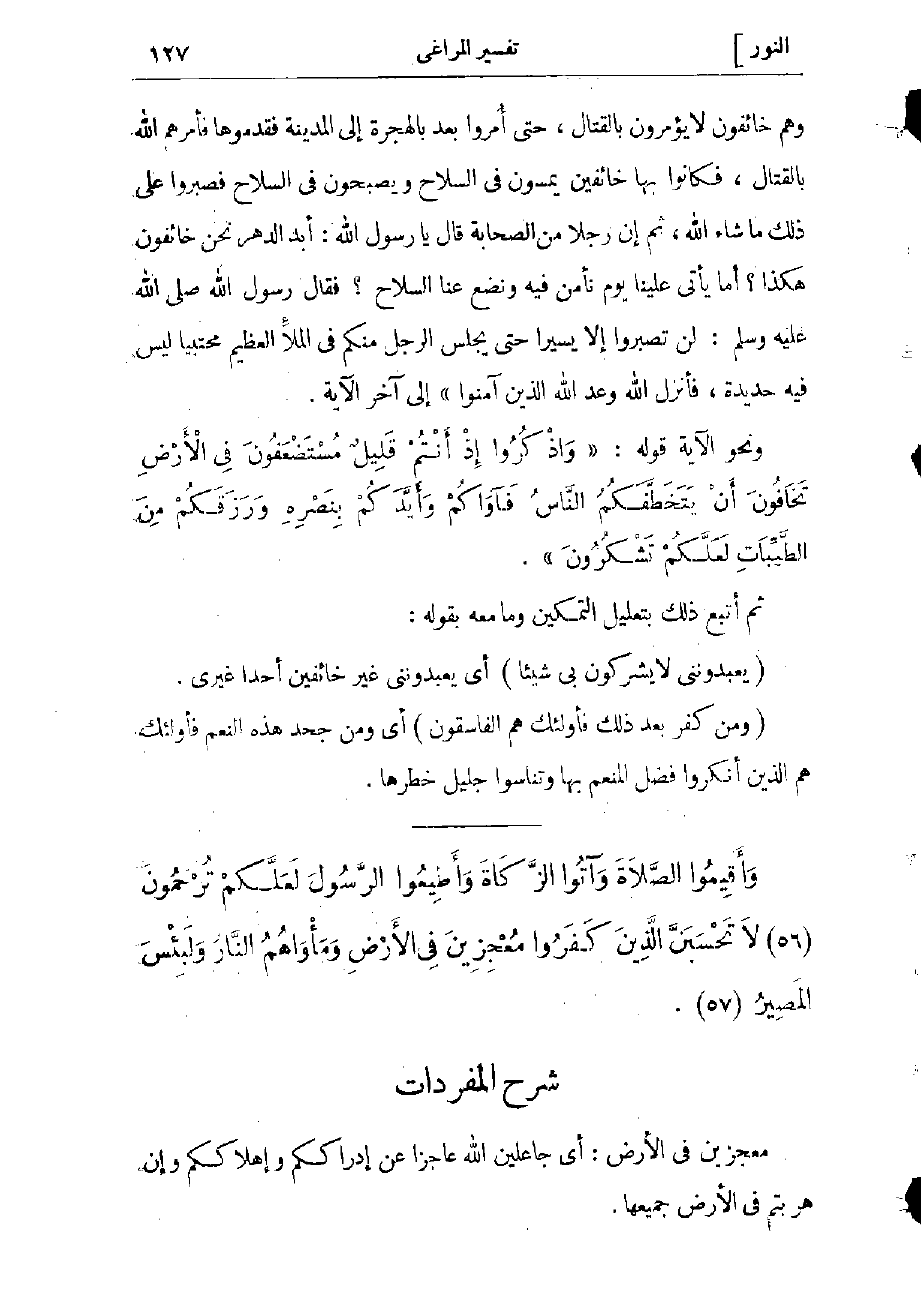 النور ] تفسير المراغى ١٢٧
وهم خائفون لا يؤمرون بالقتال ، حتى أُمروا بعد بالهجرة إلى المدينة فقدموها فأمرهم الله
بالقتال ، فكانوا بها خائفين يمسون فى السلاح ويصبحون فى السلاح فصبروا على
ذلك ما شاء الله ، ثم إن رجلا من الصحابة قال يا رسول الله : أبد الدهر نحن خائفون
هكذا ؟ أما يأتى علينا يوم نأمن فيه ونضع عنا السلاح ؟ فقال رسول الله صلى الله
عليه وسلم : لن تصبروا إلا يسيرا حتى يجلس الرجل منكم فى الملأ العظيم محتبيا ليس
فيه حديدة ، فأنزل الله وعد الله الذين آمنوا » إلى آخر الآية .
ونحو الآية قوله : « وَاذْكُرُوا إِذْ أَنْتُمْ قَلِيلٌ مُسْتَضْعَفُونَ فِى الْأَرْضِ
تَخَافُونَ أَنْ يَتَخَطَّفَكُمُ النَّاسُ فَآوَاكُمْ وَأَيَّدَكُمْ بِنَصْرِهِ وَرَزَقَكُمْ مِنَ
الطَّيِّبَاتِ لَعَلَّكُمْ تَشْكُرُونَ » .
ثم أتبع ذلك بتعليل التمكين وما معه بقوله :
( يعبدوننى لا يشركون بى شيئا ) أى يعبدوننى غير خائفين أحدا غيرى .
( ومن كفر بعد ذلك فأولئك هم الفاسقون ) أى ومن جحد هذه النعم فأولئك
هم الذين أنكروا فضل المنعم بها وتناسوا جليل خطرها .
وَأَقِيمُوا الصَّلَاةَ وَآتُوا الزَّكَاةَ وَأَطِيعُوا الرَّسُولَ لَعَلَّكُمْ تُرْحَمُونَ
(٥٦) لَا تَحْسَبَنَّ الَّذِينَ كَفَرُوا مُعْجِزِينَ فِى الْأَرْضِ وَمَأْوَاهُمُ النَّارُ وَلَبِئْسَ
الْمَصِيرُ (٥٧) .
شرح المفردات
معجزين فى الأرض : أى جاعلين الله عاجزا عن إدراككم وإهلاككم وإن
هربتم فى الأرض جميعها .